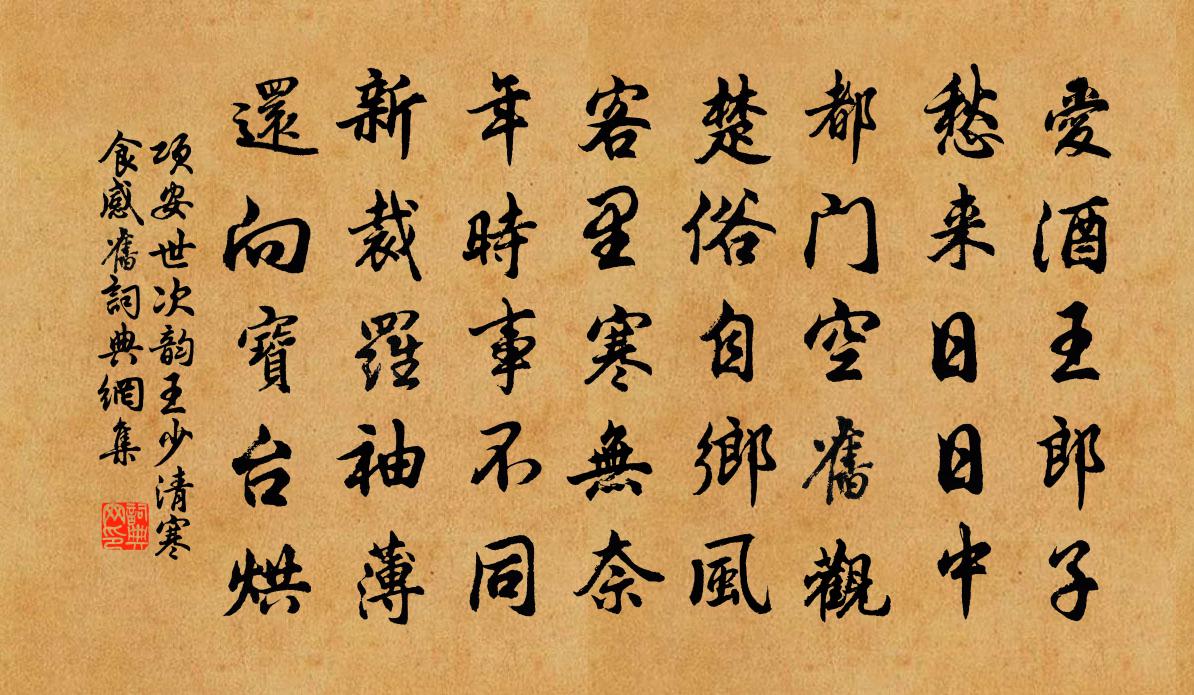 愛酒王郎子
愁来日日中
都门空舊觀
楚俗自鄉風
客里寒無奈
年時事不同
新裁羅袖薄
還向寶台烘
项安世次韵王少清寒
食感舊詞典網集
詞典网印